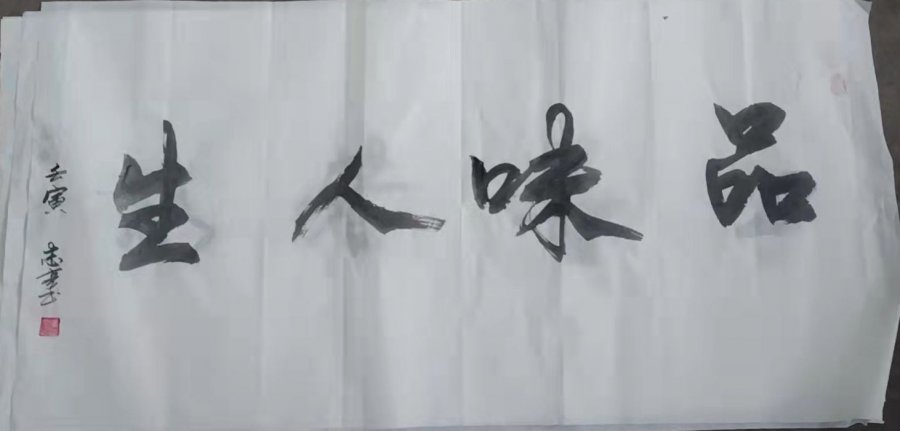 品味人生
壬寅 志